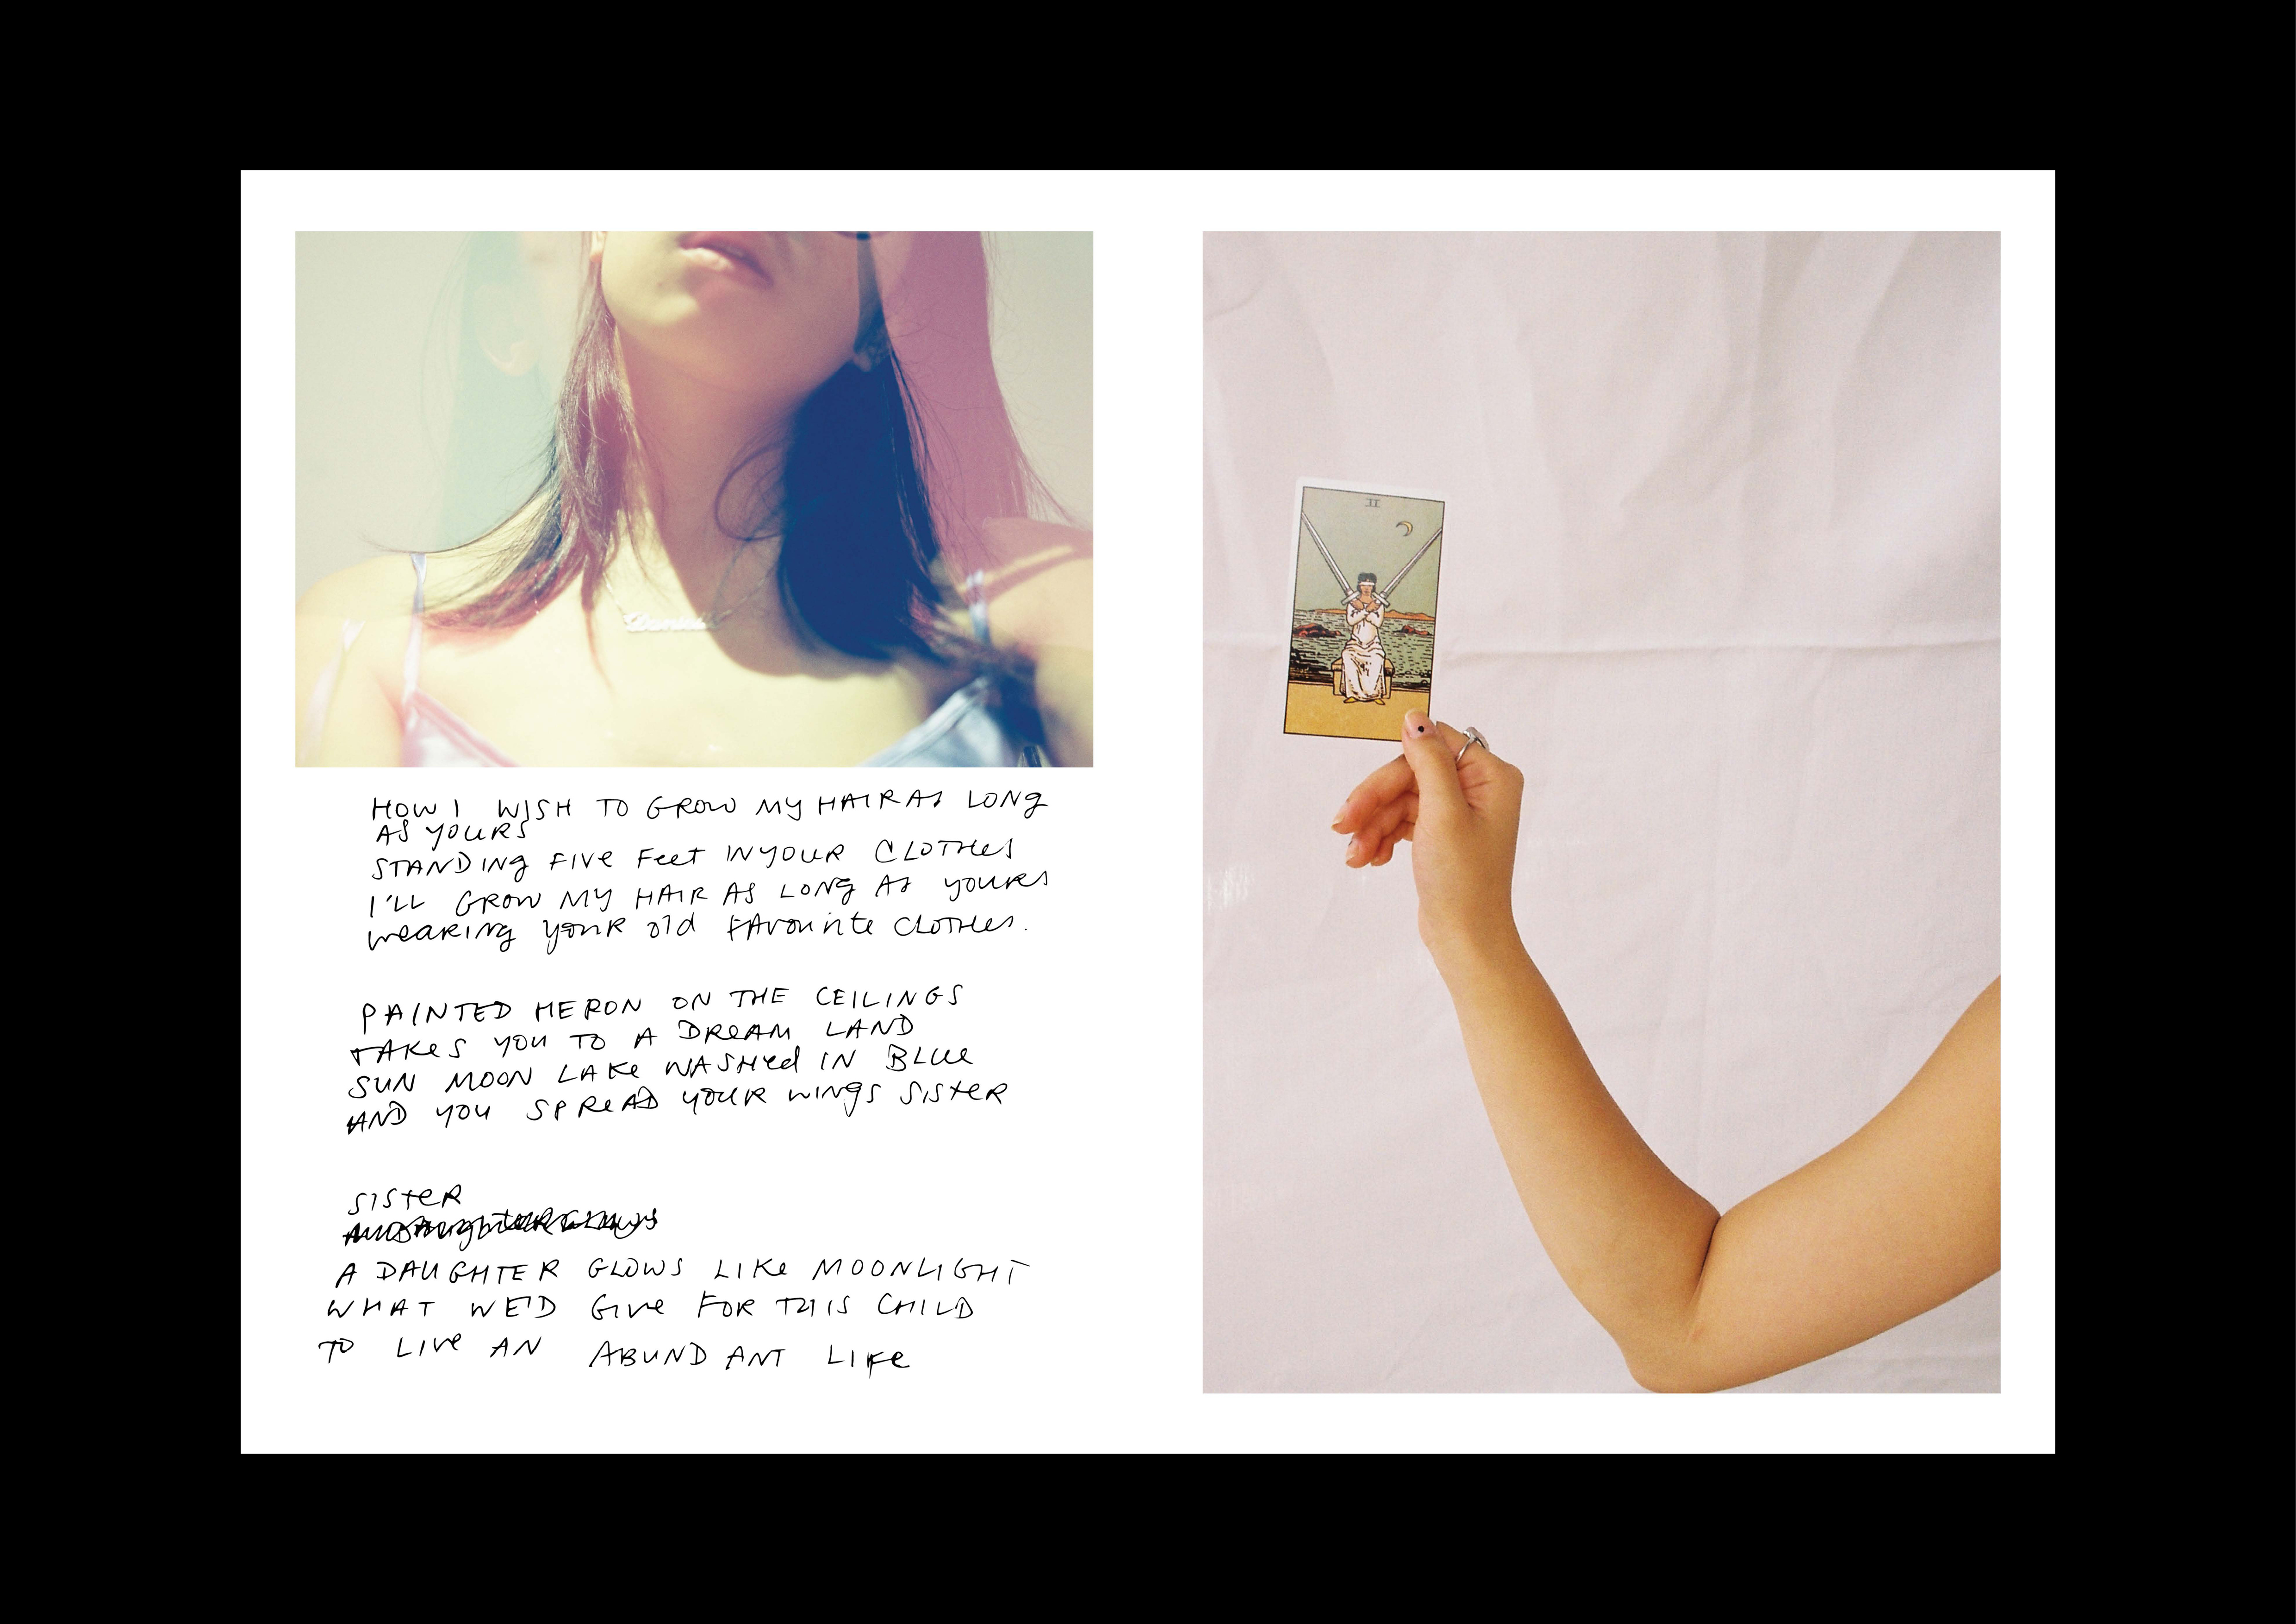 HOW I WISH TO GROW MY HAIR AS LONG
AS YOURS
STANDING FIVE FEET IN YOUR CLOTHES
I'LL GROW MY HAIR AS LONG AS YOURS
WEARING YOUR OLD FAVOURITE CLOTHES.
PAINTED HERON ON THE CEILINGS
TAKES YOU TO A DREAM LAND
SUN MOON LAKE WASHED IN BLUE
AND YOU SPREAD YOUR WINGS SISTER
SISTER
A DAUGHTER GLOWS LIKE MOONLIGHT
WHAT WE'D GIVE FOR THIS CHILD
TO LIVE AN ABUNDANT LIFE
II